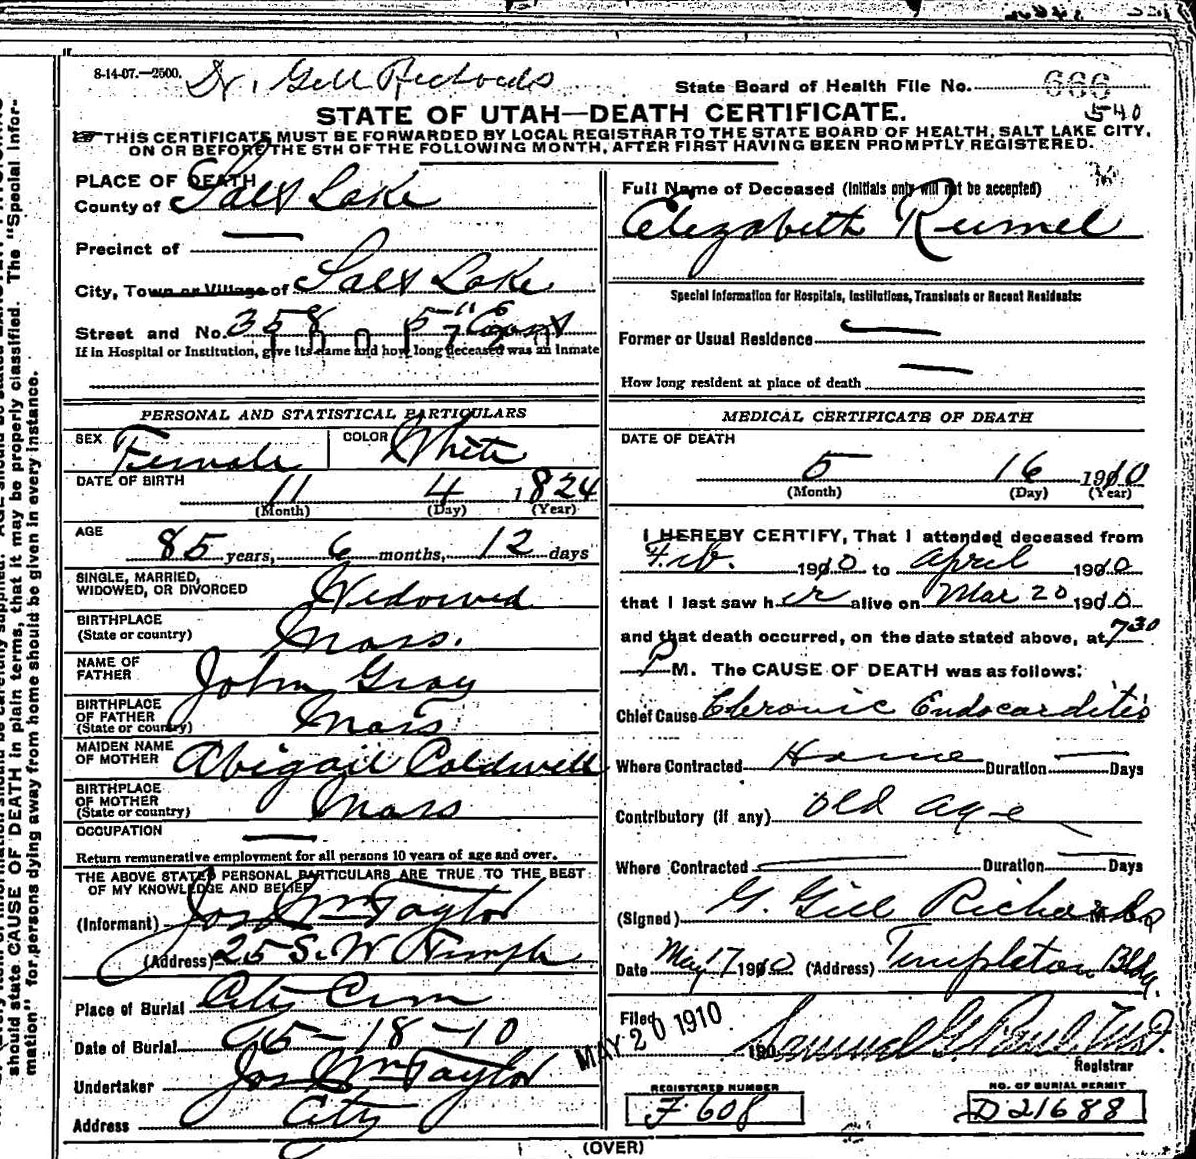 8-14-07.—2500. Dr. Gill Richards
State Board of Health File No. 666
540
STATE OF UTAH—DEATH CERTIFICATE.
THIS CERTIFICATE MUST BE FORWARDED BY LOCAL REGISTRAR TO THE STATE BOARD OF HEALTH, SALT LAKE CITY,
ON OR BEFORE THE 5TH OF THE FOLLOWING MONTH, AFTER FIRST HAVING BEEN PROMPTLY REGISTERED.
PLACE OF DEATH
County of Salt Lake
Precinct of —
City, Town or Village of Salt Lake
Street and No. 358 5" East
If in Hospital or Institution, give its name and how long deceased was an inmate
PERSONAL AND STATISTICAL PARTICULARS
SEX Female COLOR White
DATE OF BIRTH 11 4 1824
(Month) (Day) (Year)
AGE 85 years, 6 months, 12 days
SINGLE, MARRIED,
WIDOWED, OR DIVORCED Widowed
BIRTHPLACE
(State or country) Mass.
NAME OF
FATHER John Gray
BIRTHPLACE
OF FATHER
(State or country) Mass
MAIDEN NAME
OF MOTHER Abigail Coldwell
BIRTHPLACE
OF MOTHER
(State or country) Mass
OCCUPATION —
Return remunerative employment for all persons 10 years of age and over.
THE ABOVE STATED PERSONAL PARTICULARS ARE TRUE TO THE BEST
OF MY KNOWLEDGE AND BELIEF
(Informant) Jos Wm Taylor
(Address) 25 S. W Temple
Place of Burial City Cem
Date of Burial 5-18-10
Undertaker Jos Wm Taylor
Address City
Full Name of Deceased (Initials only will not be accepted)
Elizabeth Rumel
Special Information for Hospitals, Institutions, Transients or Recent Residents:
Former or Usual Residence —
How long resident at place of death —
MEDICAL CERTIFICATE OF DEATH
DATE OF DEATH
5 16 1910
(Month) (Day) (Year)
I HEREBY CERTIFY, That I attended deceased from
Feb. 1910 to April 1910
that I last saw her alive on Mar 20 1910
and that death occurred, on the date stated above, at 7 30
P M. The CAUSE OF DEATH was as follows:
Chief Cause Chronic Endocarditis
Where Contracted Home Duration — Days
Contributory (if any) old age
Where Contracted — Duration — Days
(Signed) G. Gill Richards
Date May 17 1910 (Address) Templeton Bldg.
Filed MAY 20 1910 190 Samuel G. Paul M.D.
Registrar
REGISTERED NUMBER
F 608
NO. OF BURIAL PERMIT
D 21688
(OVER)
should state CAUSE OF DEATH in plain terms, that it may be properly classified. The "Special Infor-
mation" for persons dying away from home should be given in every instance.